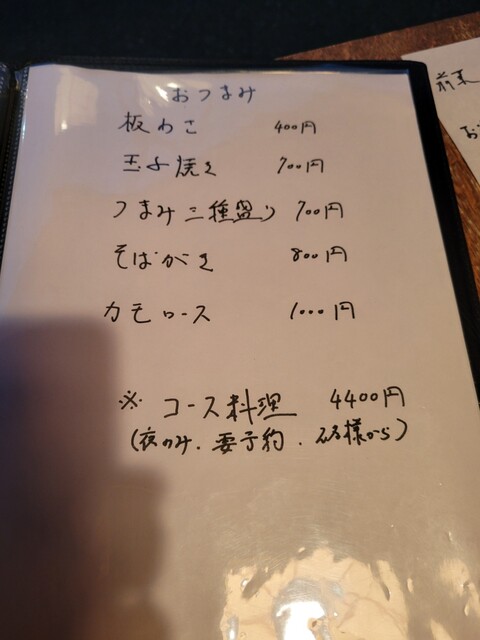 おつまみ
板わさ 400円
玉子焼き 700円
つまみ三種盛り 700円
そばがき 800円
カモロース 1000円
※ コース料理 4400円
(夜のみ.要予約.2名様から)
前菜